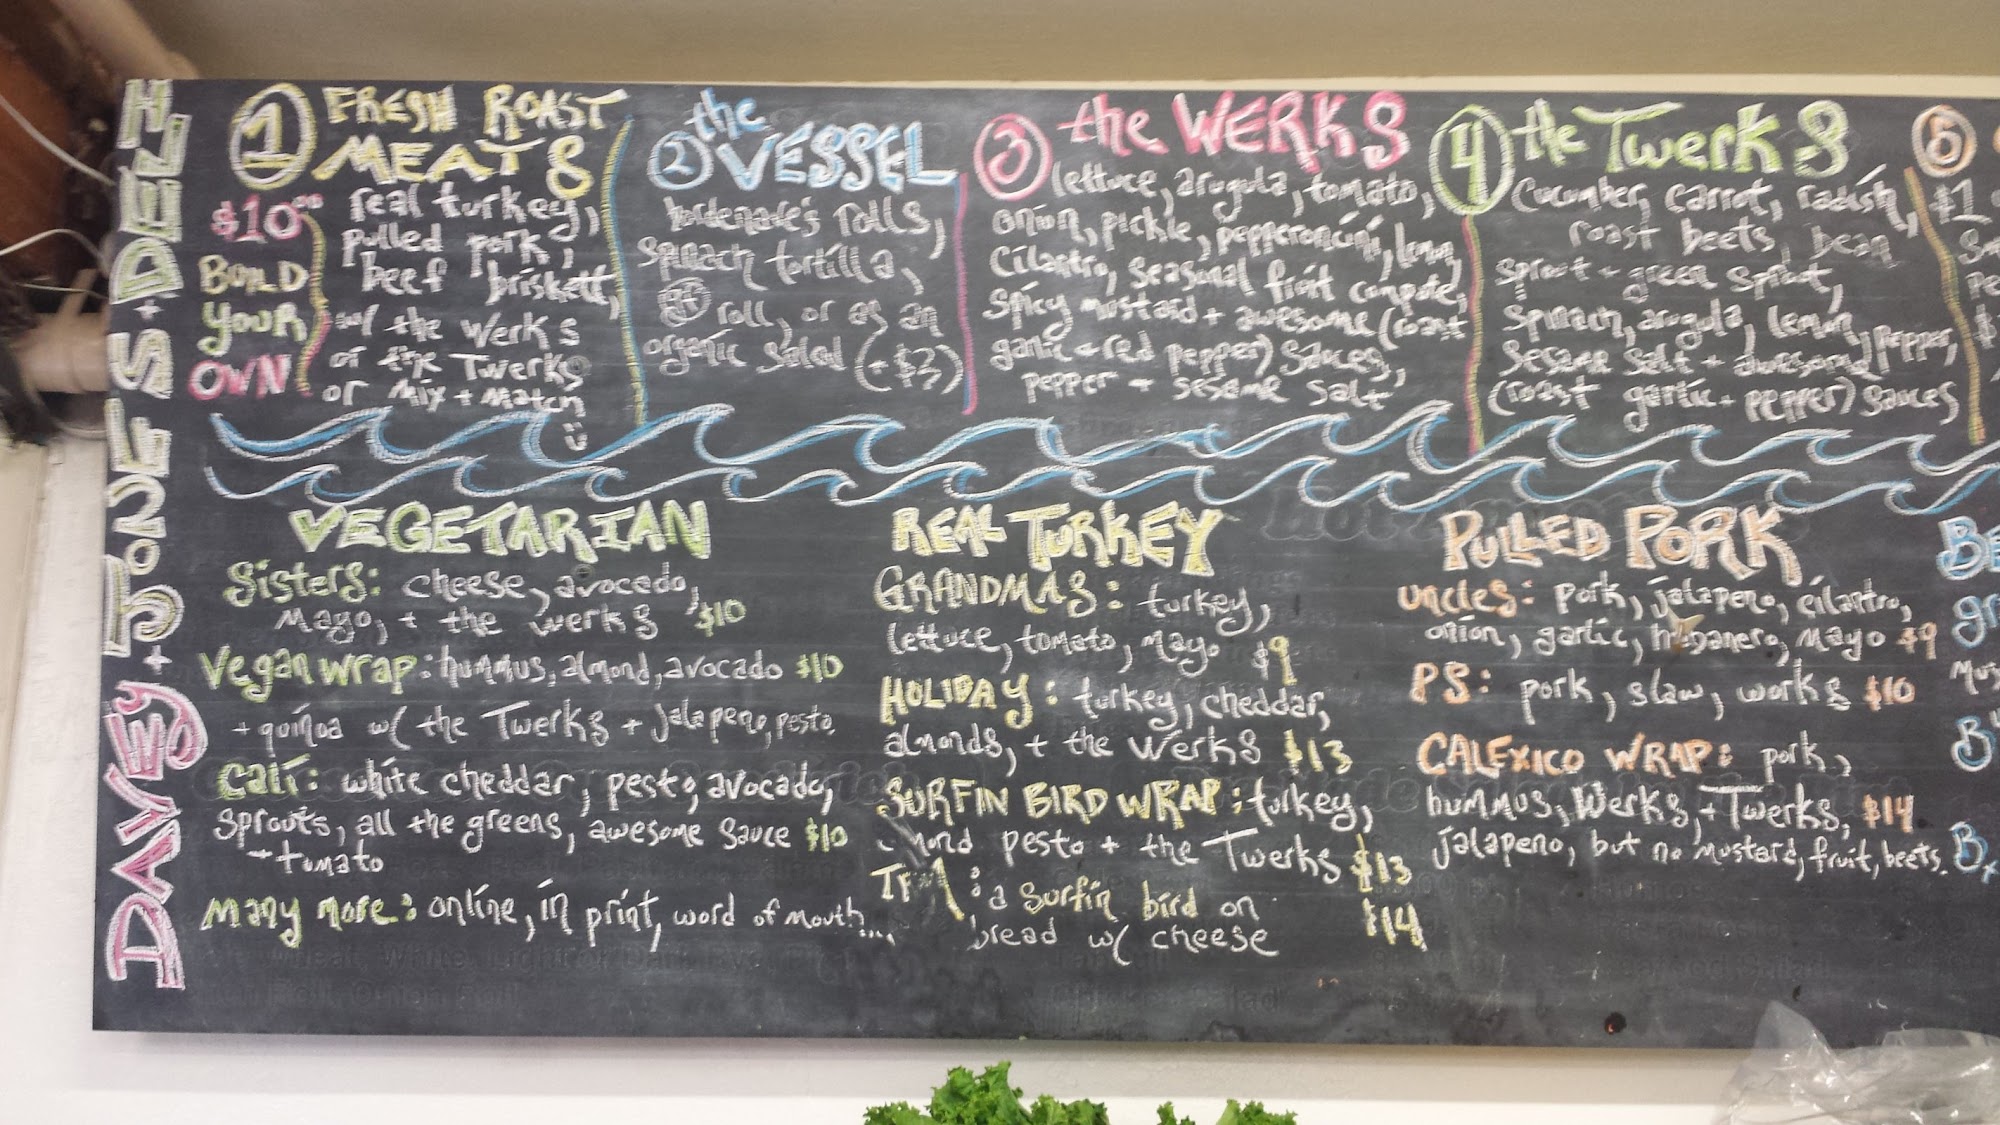 DAVEY + JONES + DELI
1 FRESH ROAST
MEATS
$10.00
BUILD
YOUR
OWN
real turkey,
pulled pork,
beef briskett,
w/ the Werks
or the Twerks
or Mix + Match
2 the
VESSEL
bordenave's rolls,
spinach tortilla,
roll, or as an
organic salad (+$3)
3 the WERKS
lettuce, arugula, tomato,
onion, pickle, pepperoncini, lemon,
cilantro, seasonal fruit compote,
spicy mustard + awesome (roast
garlic + red pepper) sauces,
pepper + sesame salt
4 the Twerks
Cucumber, carrot, radish,
roast beets, bean
sprout + green sprout,
spinach, arugula, lemon, pepper,
sesame salt + awesome
(roast garlic + pepper) sauces
5
$1
VEGETARIAN
Sisters: cheese, avocado,
Mayo, + the werks $10
Vegan wrap: hummus, almond, avocado $10
+ quinoa w/ the Twerks + jalapeno, pesto.
Cali: white cheddar, pesto, avocado,
sprouts, all the greens, awesome sauce $10
+ tomato
Many more: online, in print, word of mouth....
REAL TURKEY
GRANDMAS: turkey,
lettuce, tomato, mayo $9
HOLIDAY: turkey, cheddar,
almonds, + the werks $13
SURFIN BIRD WRAP: turkey,
mond pesto + the Twerks $13
: a surfin bird on $14
bread w/ cheese
PULLED PORK
Uncles: pork, jalapeno, cilantro,
onion, garlic, habanero, mayo $9
PS: pork, slaw, works $10
CALEXICO WRAP: pork,
hummus, Werks, + Twerks, $14
jalapeno, but no mustard, fruit, beets.